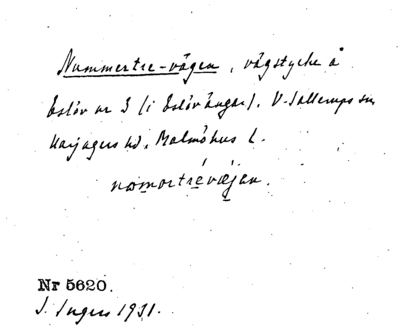 Nummertre-vägen, vägstycke å
Eslöv nr 3 (i Eslövs ängar). V. Sallerups sn,
Harjagers hd, Malmöhus l.
nomortrévæjen.
Nr 5620.
J. Ingers 1931.